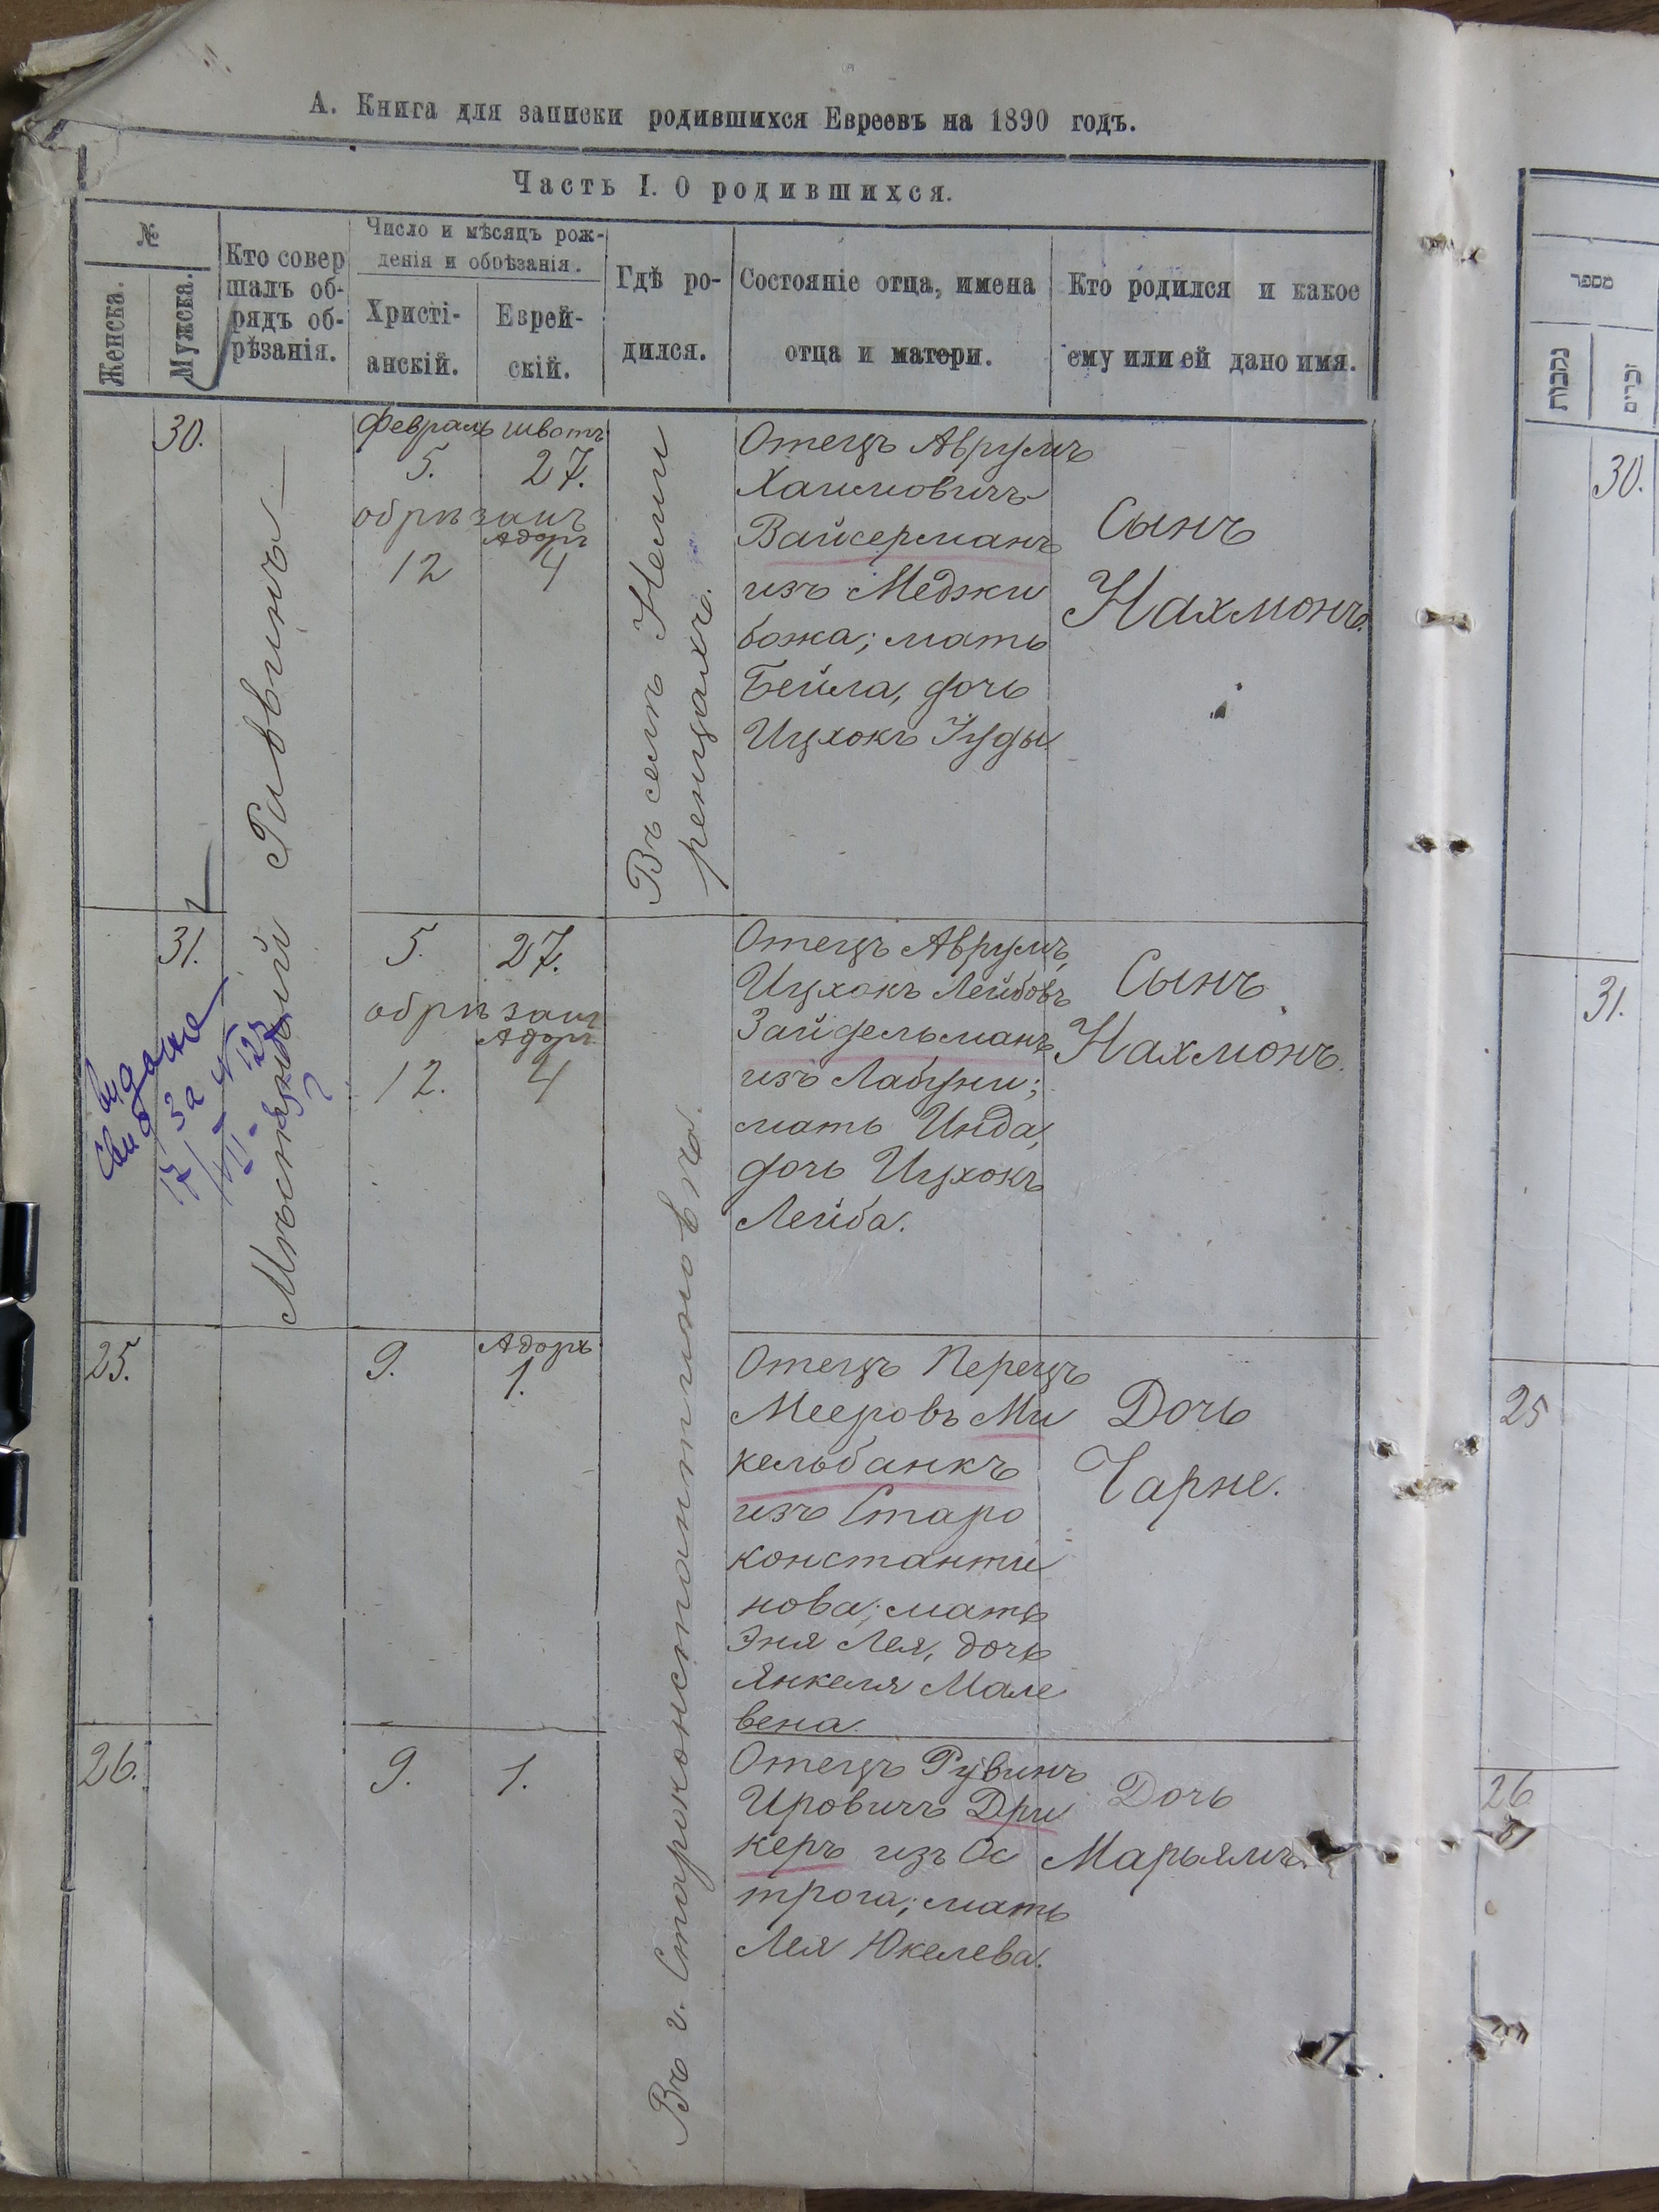 А. Книга для записки родившихся Евреевъ на 1890 годъ.
Часть I. О родившихся.
№
Женска.
Мужска.
Кто совер
шалъ об-
рядъ об-
рѣзанія.
Число и мѣсяцъ рож-
денія и обрѣзанія.
Христі-
анскій.
Еврей-
скій.
Гдѣ ро-
дился.
Состояніе отца, имена
отца и матери.
Кто родился и какое
ему или ей дано имя.
30.
Февраль шботъ
5. 27.
обрѣзанъ
Адоръ
12 4
Въ селѣ Неми
ренцахъ.
Отецъ Аврумъ
Хаимовичъ
Вайсерманъ
изъ Меджи
божа; мать
Бейла, дочь
Ицхокъ Іуды
Сынъ
Нахмонъ.
Мѣстный Раввинъ
31.
5. 27.
обрѣзанъ
Адоръ
12. 4
Отецъ Аврумъ
Ицхокъ Лейбовъ
Зайдельманъ
изъ Лабуни;
мать Инда,
дочь Ицхокъ
Лейба.
Сынъ
Нахмонъ.
Въ г. Староконстантиновѣ.
25.
9.
Адоръ
1.
Отецъ Перецъ
Мееровъ Ми
кельбанкъ
изъ Старо
константи
нова; мать
Эня Лея, дочь
Янкеля Мале
вена.
Дочь
Чарне.
26.
9. 1.
Отецъ Рувинъ
Ировичъ Дри
керъ изъ Ос
трога; мать
Лея Юкелева.
Дочь
Марьямъ.
מספר
נקבות
זכרים
30.
31.
25
26